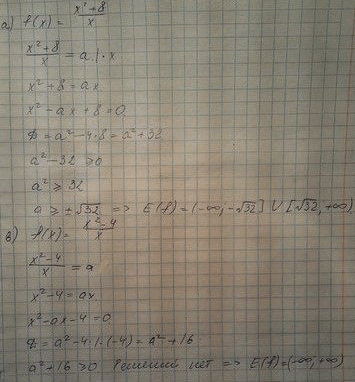 а) f(x) = x²+8/x
x²+8/x = a |·x
x²+8 = ax
x²-ax+8=0
D = a²-4·8 = a²+32
a²-32 ≥0
a² ≥ 32
a ≥ ±√32 => E(f)=(-∞,-√32] U [√32,+∞)
в) f(x)= x²-4/x
x²-4/x = a
x²-4=ax
x²-ax-4=0
D = a²-4·1·(-4) = a²+16
a²+16 ≥0 Решений нет => E(f)=(-∞,+∞)